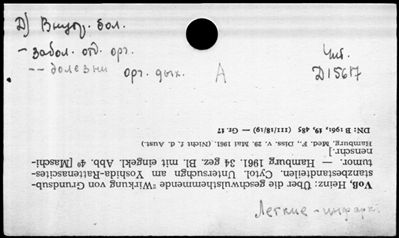 Д) Внутр. бол.
- забол. отд. орг.
-- болезни орг. дых.
А
Чит.
D15617
Voß, Heinz: Über die geschwulsthemmende Wirkung von Grundsub-
stanzbestandteilen. Cytol. Untersuchgn am Yoshida-Rattenascites-
tumor. — Hamburg 1961. 34 gez. Bl. mit eingekl. Abb. 4° [Maschi-
nenschr.]
Hamburg, Med. F., Diss. v. 29. Mai 1961 (Nicht f. d. Aust.)
DN: B 1961, 19, 485 (111/18/19) — Gr. 17
Легкие -